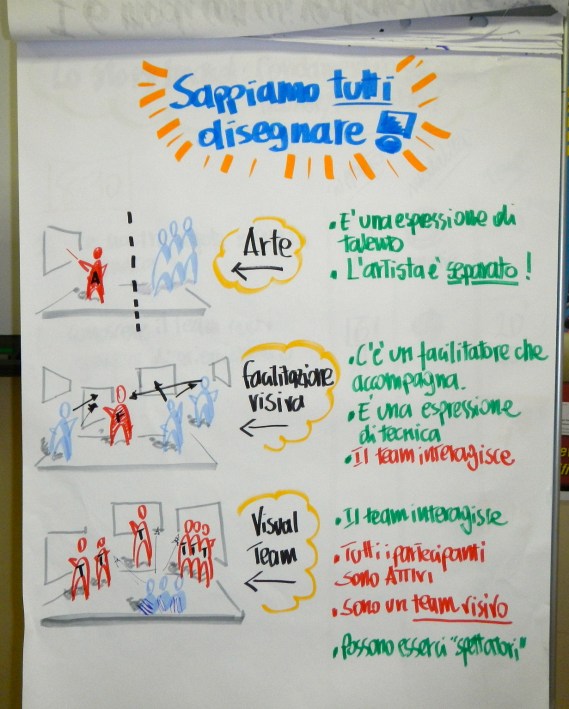 Sappiamo tutti
disegnare!
Arte
• E' una espressione di
talento
• L'artista è separato!
A
Facilitazione
visiva
• C'è un facilitatore che
accompagna.
• E' una espressione
di tecnica
• Il team interagisce
F
Visual
Team
• Il team interagisce
• Tutti i partecipanti
sono ATTIVI
• sono un team visivo
• Possono esserci "spettatori"
T T T T T T